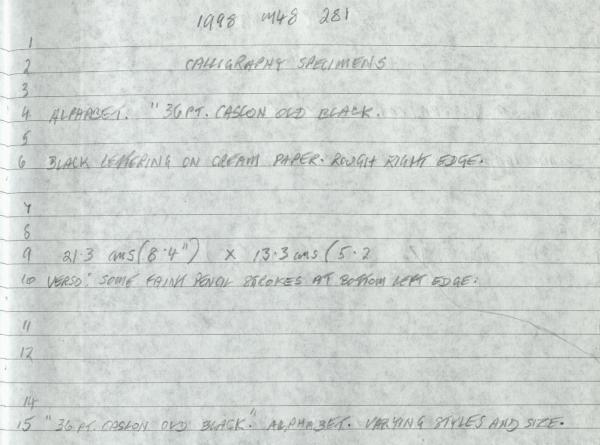 1998 M48 281
1
2 CALLIGRAPHY SPECIMENS
3
4 ALPHABET. "36PT. CASLON OLD BLACK.
5
6 BLACK LETTERING ON CREAM PAPER. ROUGH RIGHT EDGE.
7
8
9 21.3 cms (8.4") x 13.3 cms (5.2
10 VERSO: SOME FAINT PENCIL STROKES AT BOTTOM LEFT EDGE.
11
12
14
15 "36PT. CASLON OLD BLACK." ALPHABET. VARYING STYLES AND SIZE.